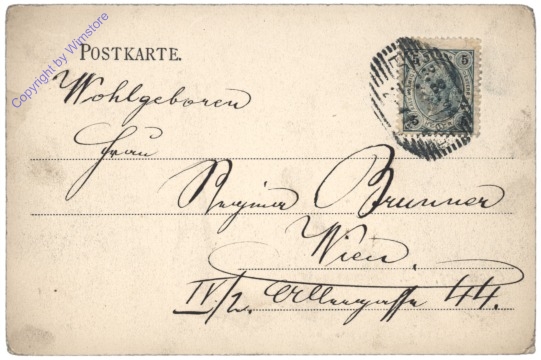 Copyright by Wimstore
POSTKARTE.
5
Wohlgeboren
Frau
Regina Brunner
Wien
IV/2. Alleegasse 44.